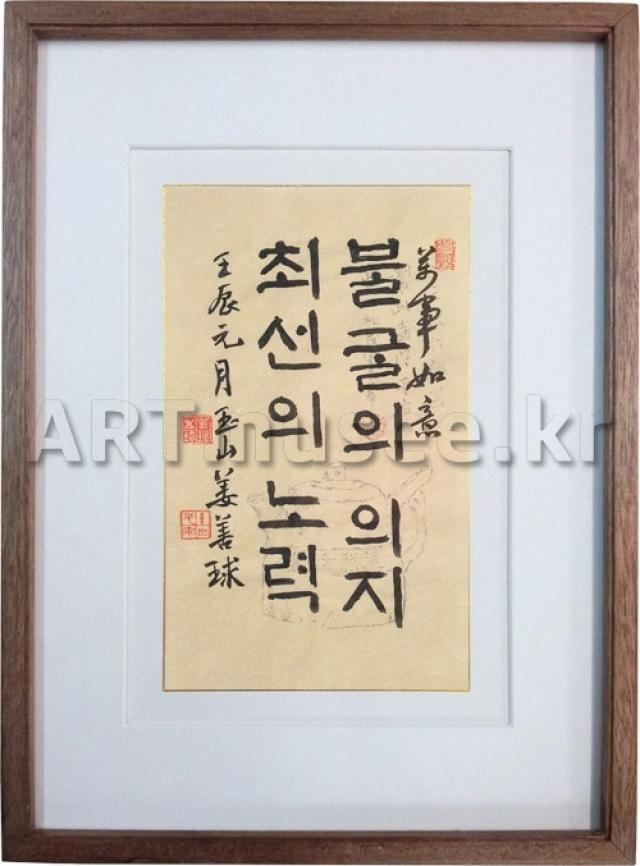 萬事如意
불굴의 의지
최선의 노력
壬辰元月 玉山 姜善球
ARTmusee.kr